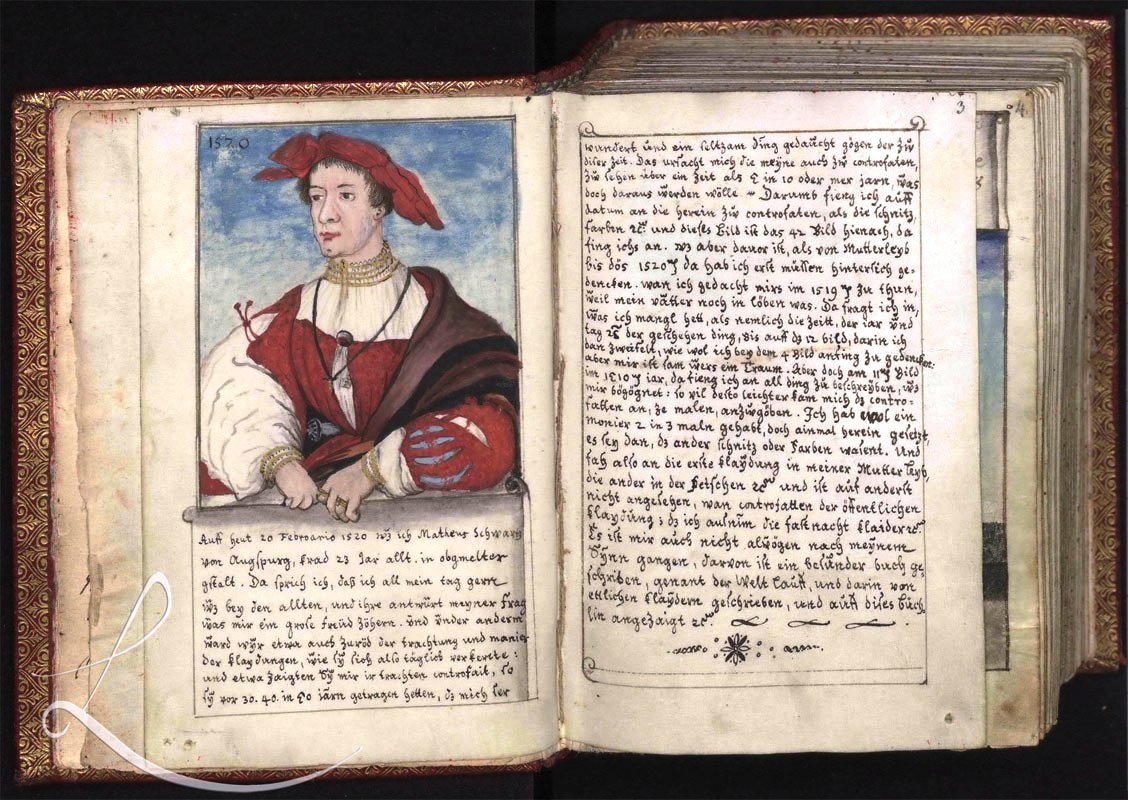 1520
Auff heut 20 Febroario 1520 wz ich Matheus Schwarz
von Augspurg, krad 23 Jar allt. in obgmelter
gstalt. Da sprich ich, daß ich all mein tag gern
wz bey den allten, und ihre antwürt meyner frag
was mir ein große freüd zöhern. Und ünder anderm
ward wyr etwa auch züröd der trachtung und manier
der klaydungen, wie sy sich also täglich verkerte:
und etwa zaigten Sy mir ir trachten controfait, so
sy vor 30. 40. in 50 iarn getragen hetten, dz mich ser
3
wundert und ein seltzam ding gedaücht gögen der zů
diser zeit. Das ursacht mich die meyne auch zů controfaten,
zů sehen über ein zeit als 5 in 10 oder mer jarn, was
doch daraus werden wölle Darumb fieng ich auff
datum an die herein zů controfaten, als die schnitz,
farben und dieses Bild ist das 42 Bild hienach, da
fing ichs an. wz aber davor ist, als von Mutterleyb
bis dös 1520 da hab ich erst müssen hintersich ge-
dencken. wan ich gedacht mirs im 1519 zu thun,
weil mein vatter noch in löben was. Da fragt ich in,
was ich mangl hett, als nemlich die zeitt, der iar und
tag der geschehen ding, bis auff dz 12 bild, darin ich
dan zweifelt, wie wol ich bey dem 4 Bild anfing zu gedencken.
aber mir ist sam wers ein Traum. Aber doch am 11 Bild
im 1510 iar, da fieng ich an all ding zů beschreyben, wz
mir bögögnet: so vil desto leichter kam mich dz contro-
fatten an, ze malen, anzuwgöben. Ich hab wol ein
monier 2 in 3 maln gehabt, doch ainmal herein gesetzt,
es sey dan, dz ander schnitz oder farben waient. Und
fah also an die erste klaydung in meiner Mutter leyb,
die ander in der fetschen und ist auf anderst
nicht angesehen, wan controfatten der öffentlichen
klaydung; dz ich ausnim die fastnacht klaider
Es ist mir auch nicht alwögen nach meynem
Synn gangen, darvon ist ein besünder buch ge-
schriben, genant der Welt lauff, und darin von
ettlichen klaydern geschrieben, und auff dises büch
lin angezaigt
4